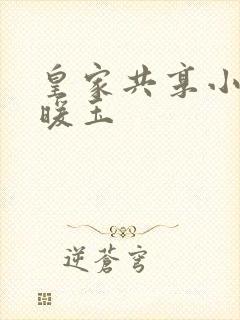 皇家共享小
暖玉
逆蒼穹